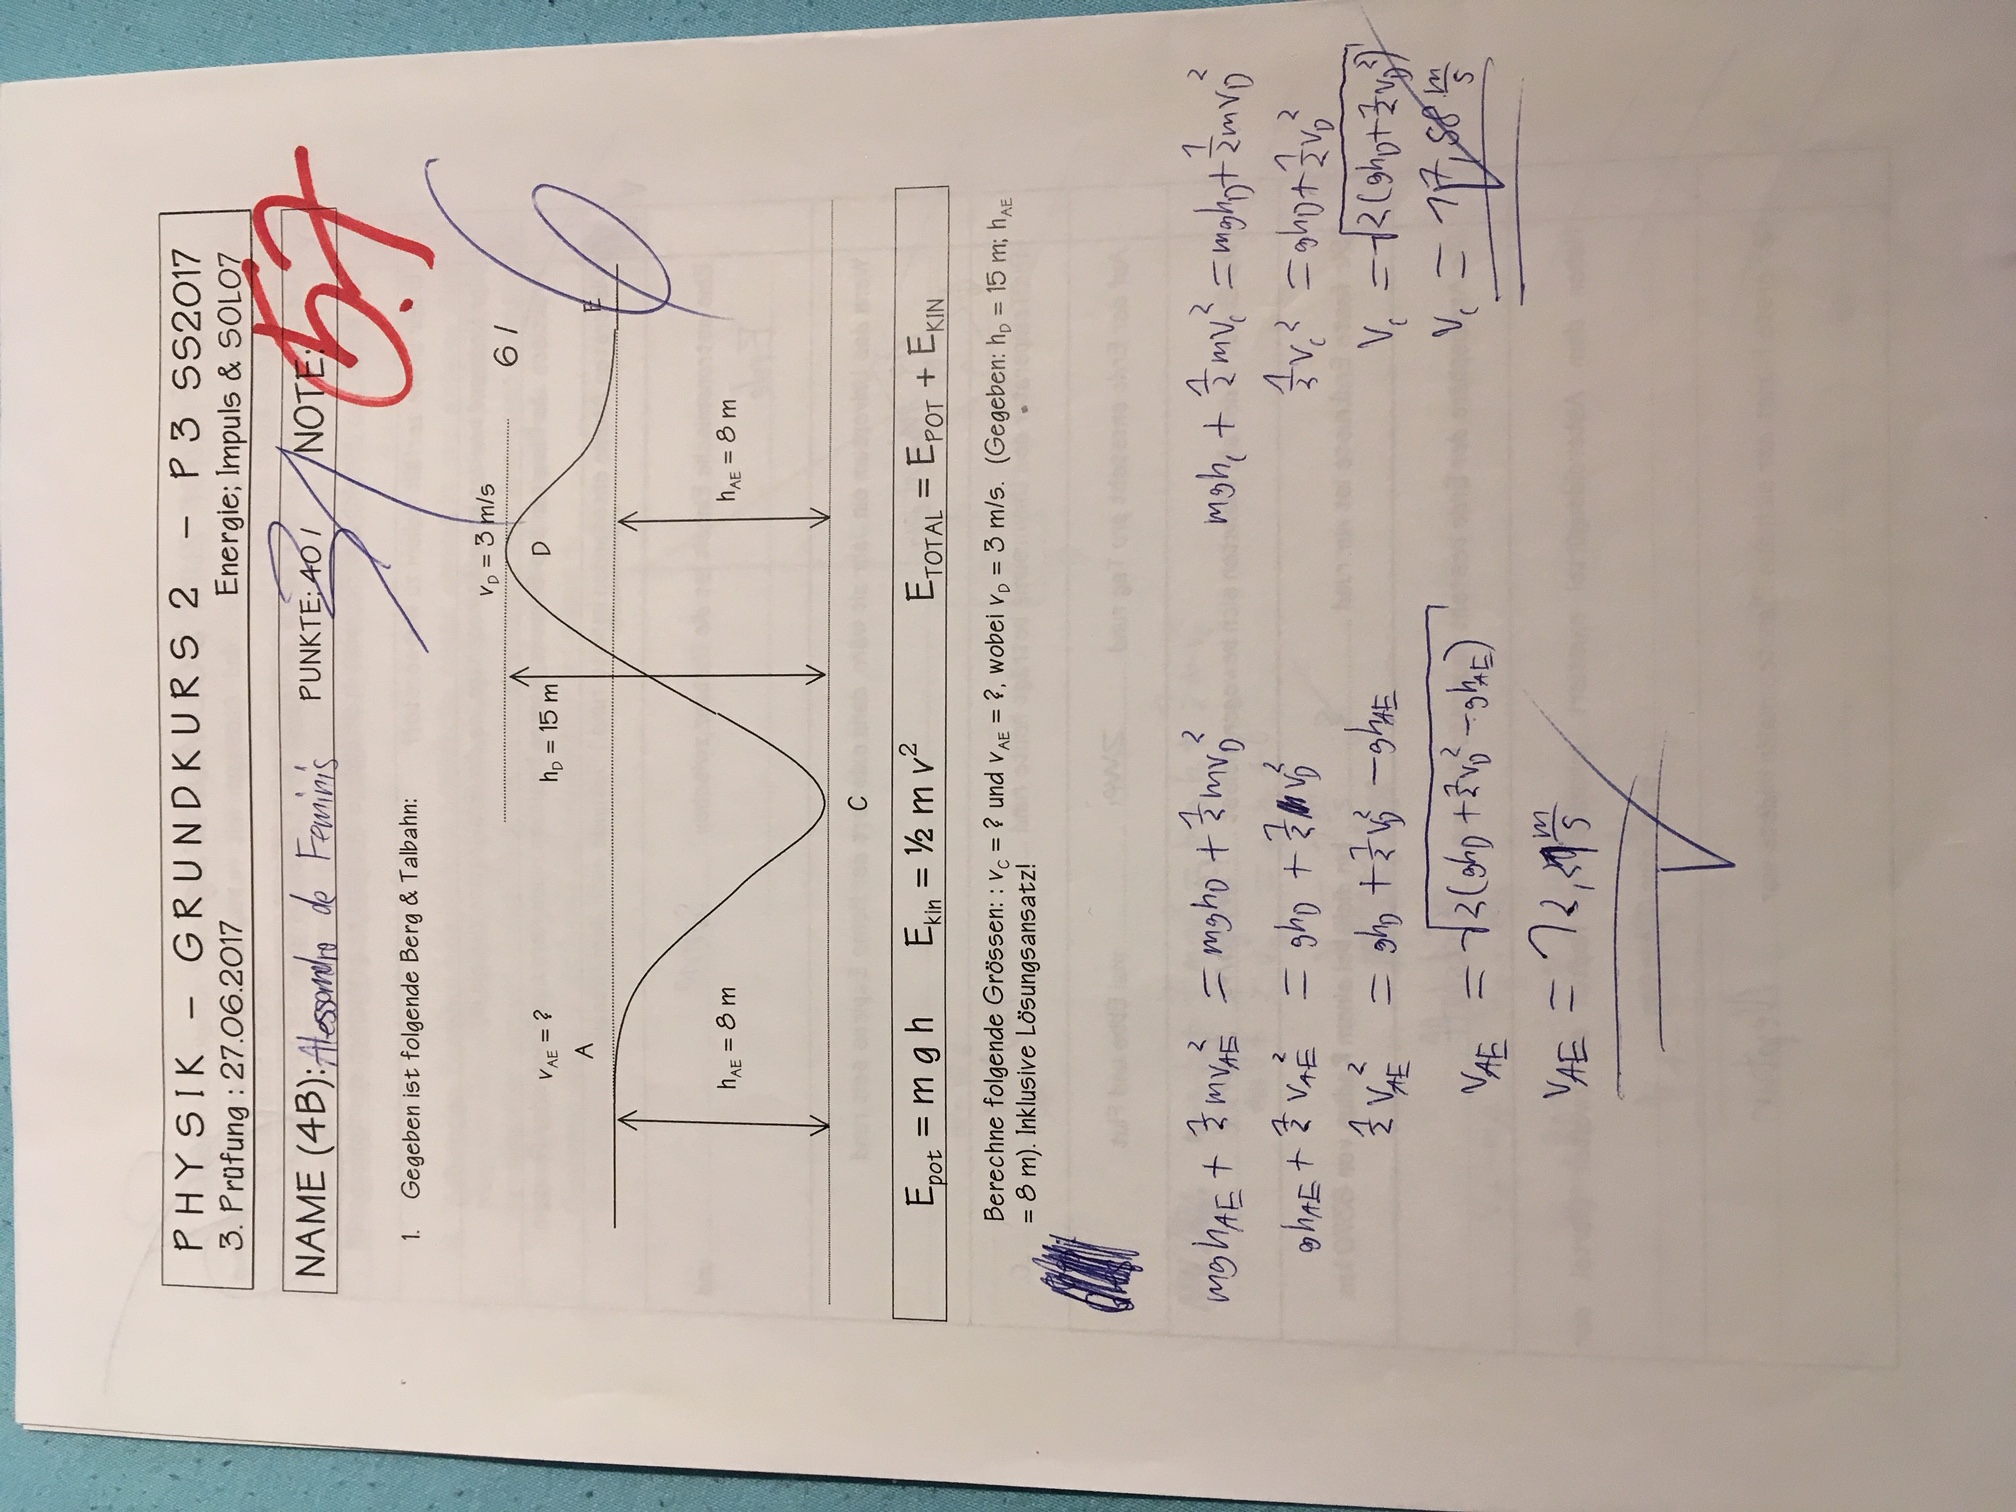 PHYSIK – GRUNDKURS 2 – P3 SS2017
3. Prüfung : 27.06.2017 Energie; Impuls & SOL07
NAME (4B): Alessandro de Feminis PUNKTE: 40 / 31 NOTE: 5.7
1. Gegeben ist folgende Berg & Talbahn:
v_D = 3 m/s
6 / 6
v_AE = ? h_D = 15 m D
A E
h_AE = 8 m h_AE = 8 m
C
E_pot = m g h E_kin = ½ m v² E_TOTAL = E_POT + E_KIN
Berechne folgende Grössen: : v_C = ? und v_AE = ?, wobei v_D = 3 m/s. (Gegeben: h_D = 15 m; h_AE
= 8 m). Inklusive Lösungsansatz!
mgh_AE + ½mv_AE² = mgh_D + ½mv_D² mgh_c + ½mv_c² = mgh_D + ½mv_D²
gh_AE + ½v_AE² = gh_D + ½v_D² ½v_c² = gh_D + ½v_D²
½v_AE² = gh_D + ½v_D² − gh_AE v_c = √2(gh_D + ½v_D²)
v_AE = √2(gh_D + ½v_D² − gh_AE) v_c = 17,58 m/s
v_AE = 12,1 m/s